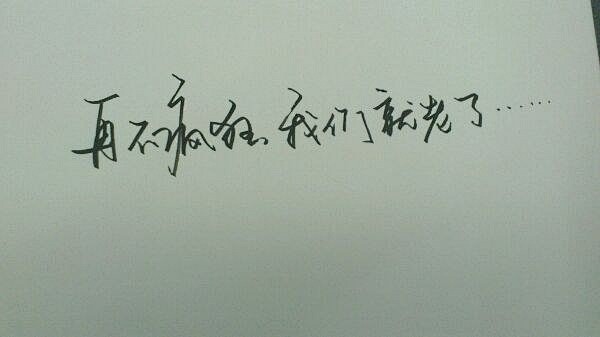 再不疯狂,我们就老了……